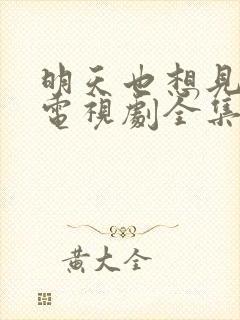 明天也想見
電視劇全集
黃大全